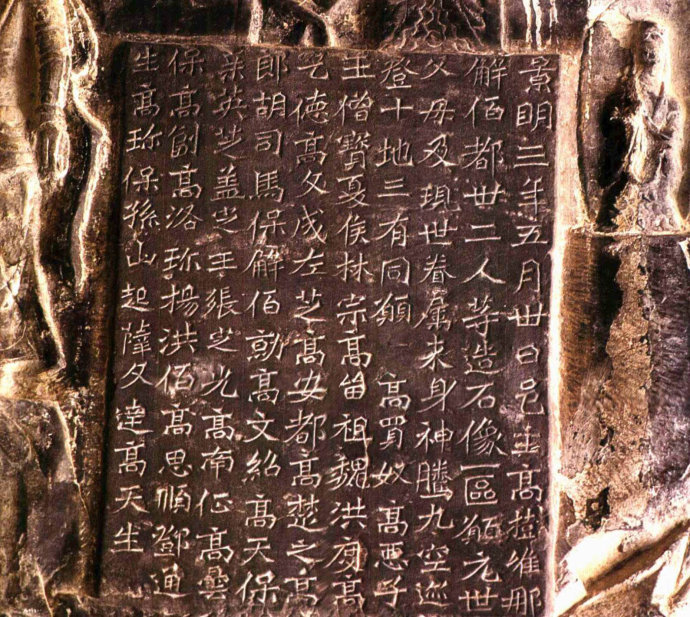 景明三年五月卅日邑主高樹維那
解佰都卅二人等造石像一區願元世
父母及現世眷屬来身神騰九空迹
登十地三有同願 高買奴高惡子
王僧寶夏侯林宗高留祖魏洪度高
乞德高文成左芝高安都高楚之高
郎胡司馬保解佰勍高文紹高天保
英芝盖之王張之光高南征高曇
保高副高洛珎楊洪佰高思順鄧通
生高珎保孫山起薩文達高天生